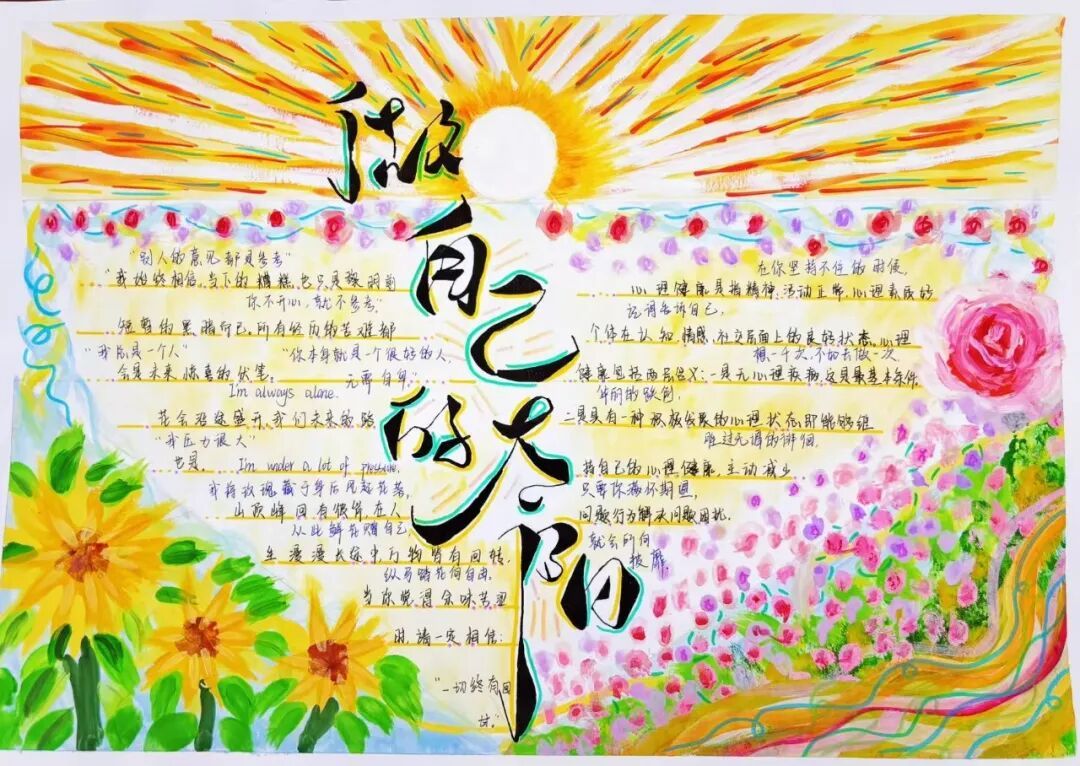 做自己的太阳
"别人的意见都是参考"
"我始终相信,当下的糟糕,也只是黎明前
你不开心,就不参考"
短暂的黑暗而已,所有经历的苦难都
"我总是一个人"
"你本身就是一个很好的人,
会是未来惊喜的伏笔。
无需自卑"
I'm always alone.
花会沿途盛开,我们未来的路
"我压力很大"
也是。 I'm under a lot of pressure.
我将玫瑰藏于身后,风起花落,
山顶峰回有很多,在人
从此鲜花赠自己,
生漫漫长途中,万物皆有回转,
纵马踏花向自由。
当你觉得余味苦涩
时,请一定相信:
"一切终有回
甘。"
在你坚持不住的时候,
心理健康是指精神、活动正常、心理素质好
记得告诉自己,
个体在认知、情感、社交层面上的良好状态。心理
想一千次,不如去做一次
健康包括两层含义:一是无心理疾病,这是最基本条件
华丽的跌倒
二是具有一种积极发展的心理状态,即能够维
胜过无谓的徘徊
持自己的心理健康,主动减少
只要你满怀期望,
问题行为解决问题困扰.
就会所向
披靡